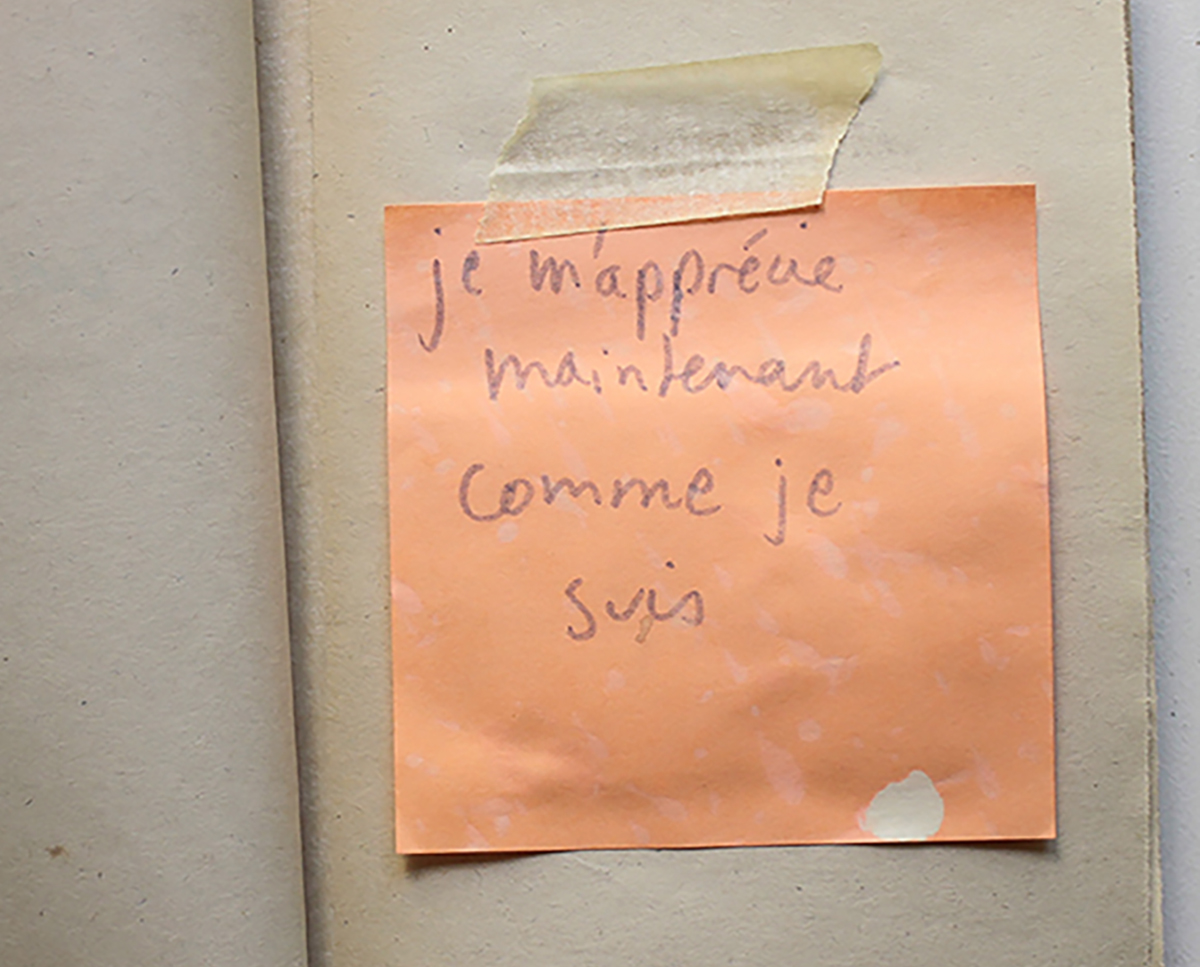 je m'apprécie
maintenant
comme je
suis